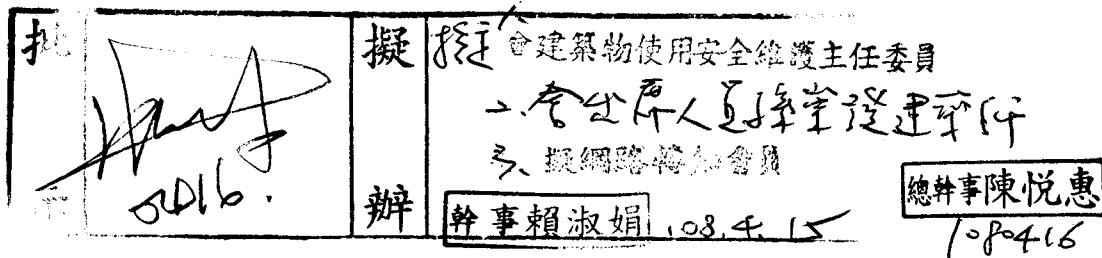 批示
0416.
擬辦
1、會建築物使用安全維護主任委員
2、會出席人員孫崇發建築師
3、擬網路轉知會員
幹事賴淑娟 108.4.15
總幹事陳悅惠
1080416